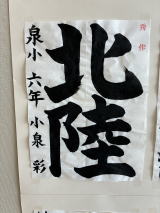 秀作
北陸
泉小 六年 小泉 彩